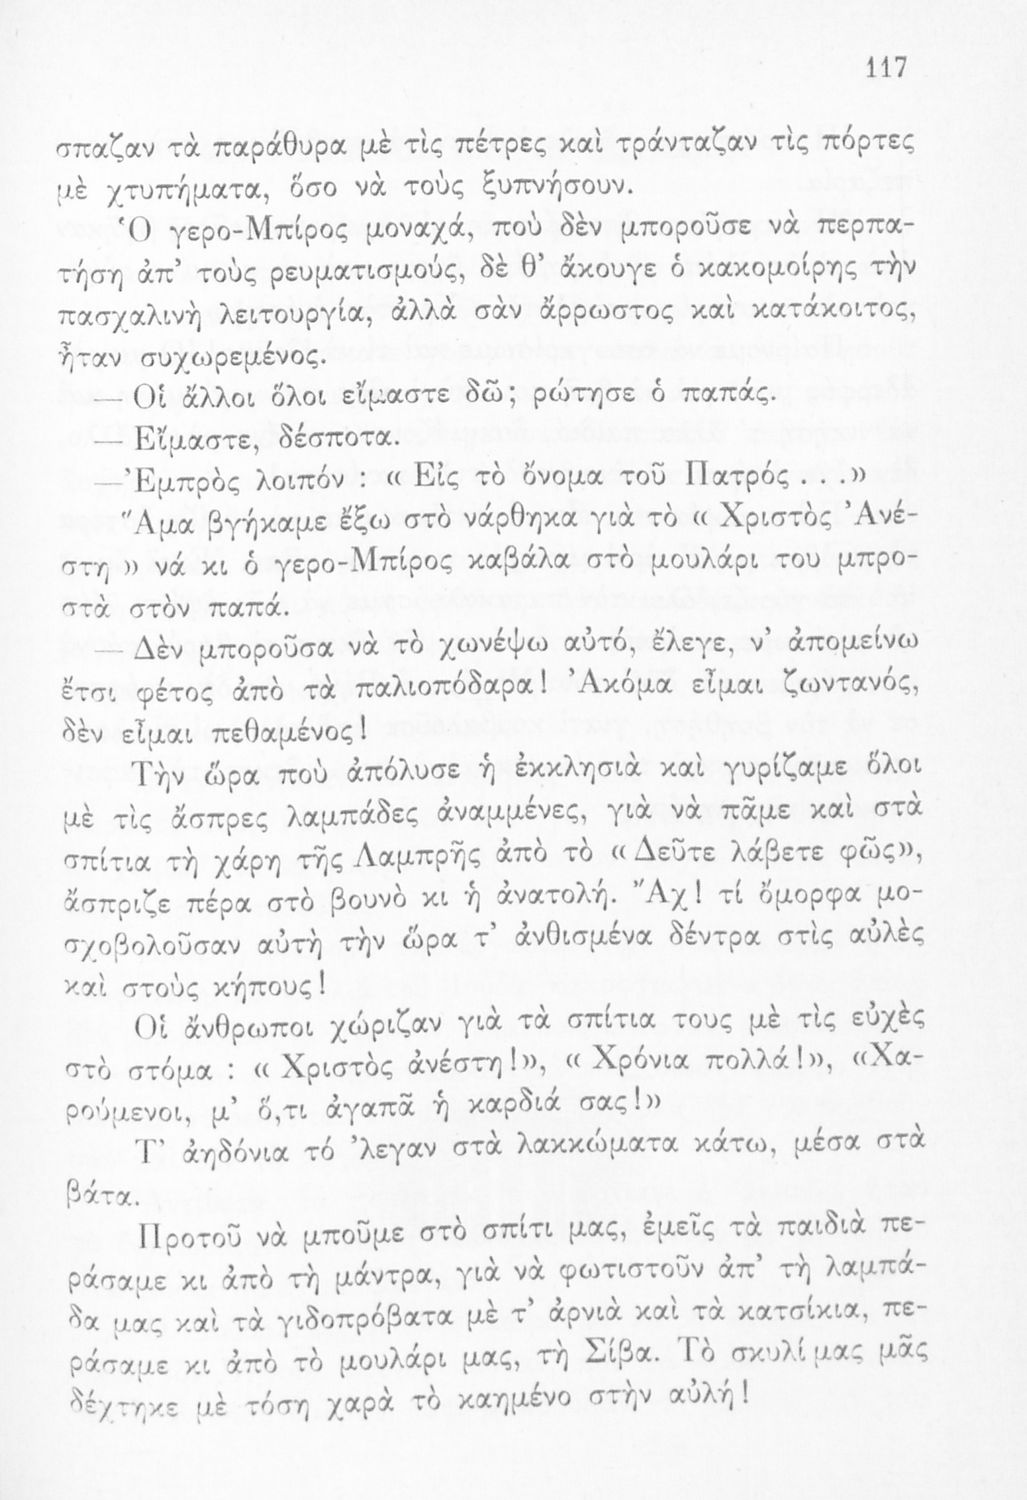 117
σπαζαν τὰ παράθυρα μὲ τὶς πέτρες καὶ τράνταζαν τὶς πόρτες
μὲ χτυπήματα, ὅσο νὰ τοὺς ξυπνήσουν.
Ὁ γερο-Μπίρος μοναχά, ποὺ δὲν μποροῦσε νὰ περπα-
τήση ἀπ’ τοὺς ρευματισμούς, δὲ θ’ ἄκουγε ὁ κακομοίρης τὴν
πασχαλινὴ λειτουργία, ἀλλὰ σὰν ἄρρωστος καὶ κατάκοιτος,
ἦταν συχωρεμένος.
— Οἱ ἄλλοι ὅλοι εἴμαστε δῶ; ρώτησε ὁ παπάς.
— Εἴμαστε, δέσποτα.
—Ἐμπρὸς λοιπόν : « Εἰς τὸ ὄνομα τοῦ Πατρός . . .»
Ἅμα βγήκαμε ἔξω στὸ νάρθηκα γιὰ τὸ « Χριστὸς Ἀνέ-
στη » νά κι ὁ γερο-Μπίρος καβάλα στὸ μουλάρι του μπρο-
στὰ στὸν παπά.
— Δὲν μποροῦσα νὰ τὸ χωνέψω αὐτό, ἔλεγε, ν’ ἀπομείνω
ἔτσι φέτος ἀπὸ τὰ παλιοπόδαρα! Ἀκόμα εἶμαι ζωντανός,
δὲν εἶμαι πεθαμένος!
Τὴν ὥρα ποὺ ἀπόλυσε ἡ ἐκκλησιὰ καὶ γυρίζαμε ὅλοι
μὲ τὶς ἄσπρες λαμπάδες ἀναμμένες, γιὰ νὰ πᾶμε καὶ στὰ
σπίτια τὴ χάρη τῆς Λαμπρῆς ἀπὸ τὸ «Δεῦτε λάβετε φῶς»,
ἄσπριζε πέρα στὸ βουνὸ κι ἡ ἀνατολή. Ἄχ! τί ὄμορφα μο-
σχοβολοῦσαν αὐτὴ τὴν ὥρα τ’ ἀνθισμένα δέντρα στὶς αὐλὲς
καὶ στοὺς κήπους!
Οἱ ἄνθρωποι χώριζαν γιὰ τὰ σπίτια τους μὲ τὶς εὐχὲς
στὸ στόμα : « Χριστὸς ἀνέστη!», « Χρόνια πολλά!», «Χα-
ρούμενοι, μ’ ὅ,τι ἀγαπᾶ ἡ καρδιά σας!»
Τ’ ἀηδόνια τό ’λεγαν στὰ λακκώματα κάτω, μέσα στὰ
βάτα.
Προτοῦ νὰ μποῦμε στὸ σπίτι μας, ἐμεῖς τὰ παιδιὰ πε-
ράσαμε κι ἀπὸ τὴ μάντρα, γιὰ νὰ φωτιστοῦν ἀπ’ τὴ λαμπά-
δα μας καὶ τὰ γιδοπρόβατα μὲ τ’ ἀρνιὰ καὶ τὰ κατσίκια, πε-
ράσαμε κι ἀπὸ τὸ μουλάρι μας, τὴ Σίβα. Τὸ σκυλί μας μᾶς
δέχτηκε μὲ τόση χαρὰ τὸ καημένο στὴν αὐλή!